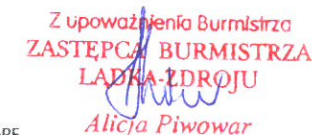 Z upoważnienia Burmistrza
ZASTĘPCA BURMISTRZA
LĄDKA-ZDROJU
Alicja Piwowar